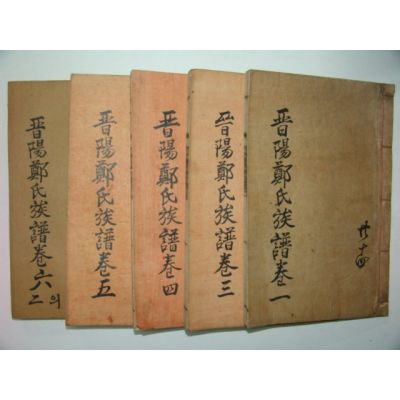 晋陽鄭氏族譜卷一
共十四
晋陽鄭氏族譜卷三
晋陽鄭氏族譜卷四
晋陽鄭氏族譜卷五
晋陽鄭氏族譜卷六의二